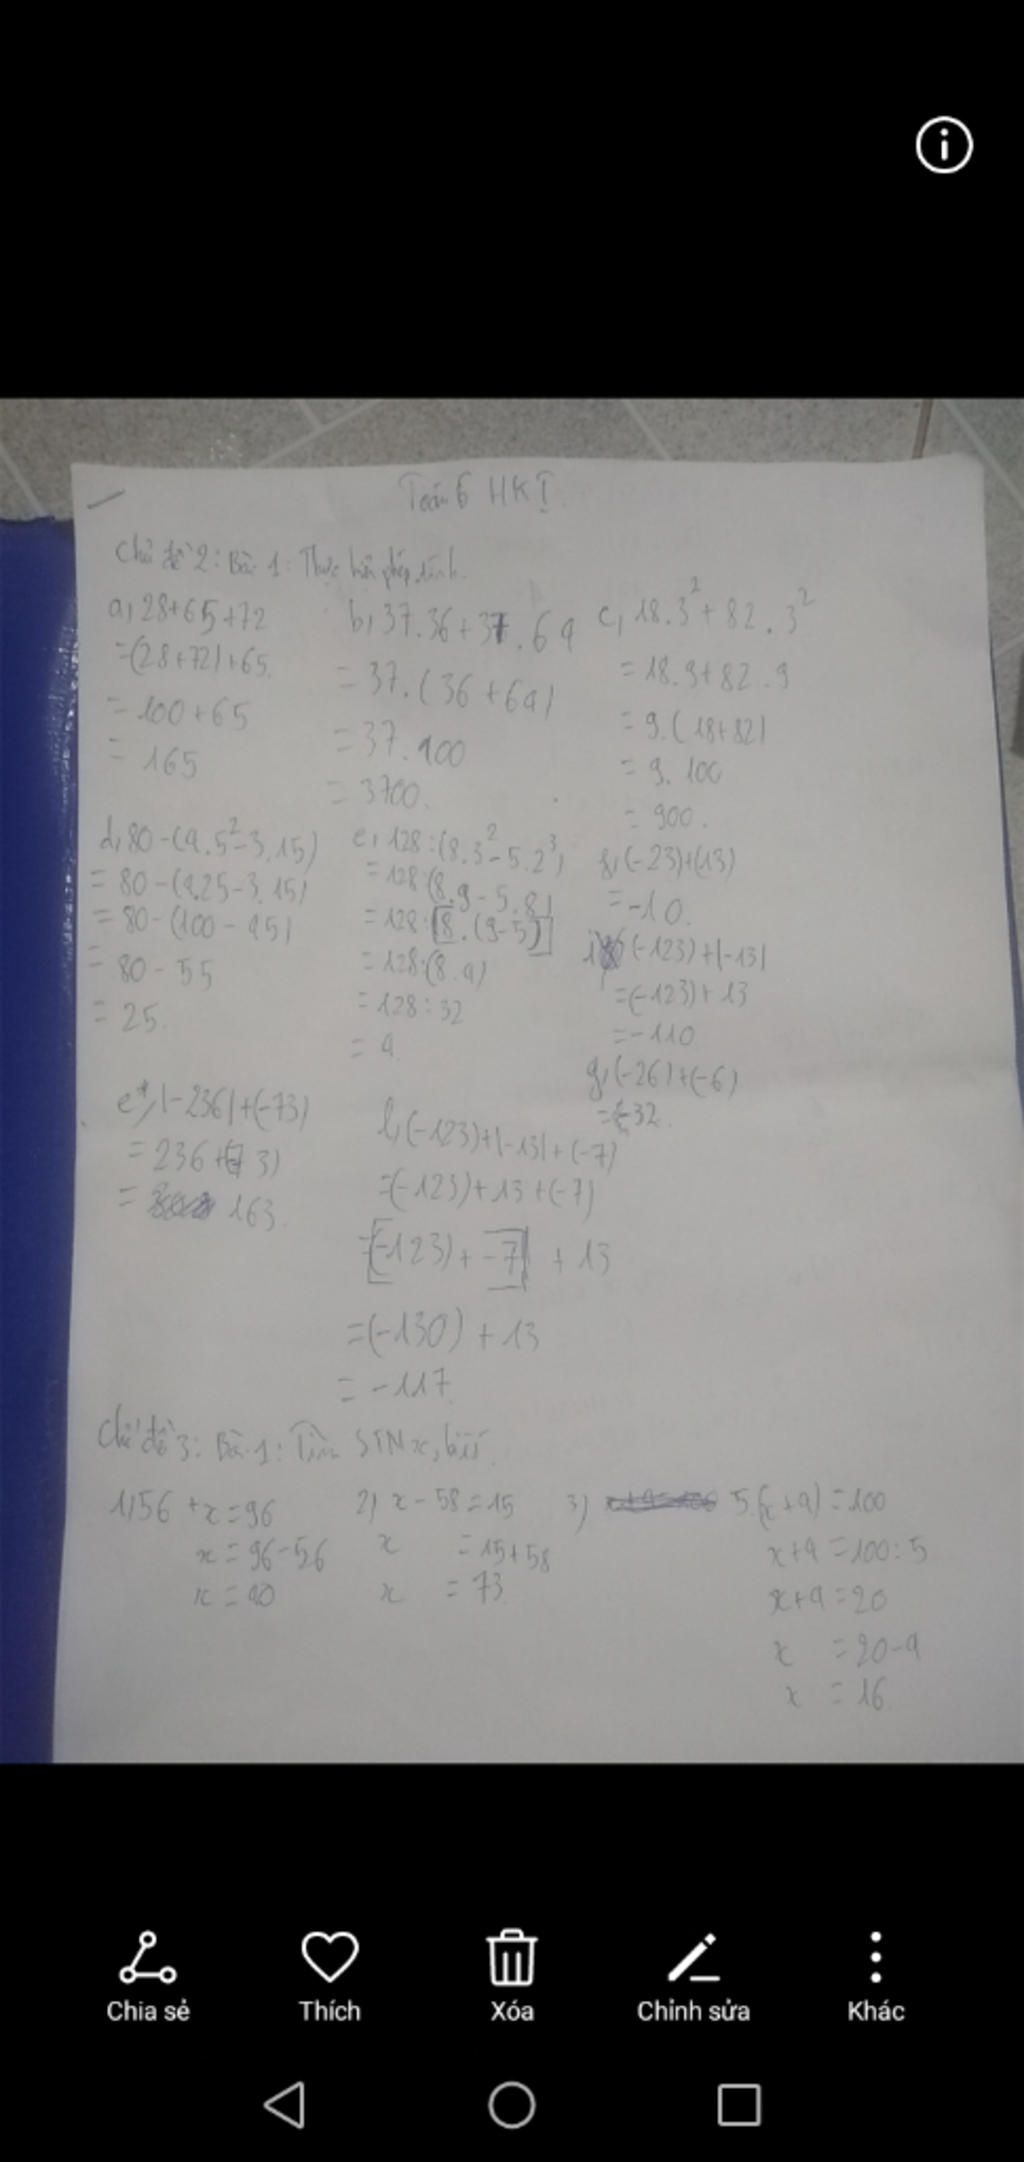 Toán 6 HKI
Chủ đề 2: Bài 1: Thực hiện phép tính.
a, 28+65+72
=(28+72)+65
= 100+65
= 165
b, 37.36+37.64
= 37.(36+64)
= 37.100
= 3700.
c, 18.3²+82.3²
= 18.9+82.9
= 9.(18+82)
= 9.100
= 900.
d, 80-(4.5²-3.15)
= 80-(4.25-3.15)
= 80-(100-45)
= 80-55
= 25.
e, 128:(8.3²-5.2³)
= 128:(8.9-5.8)
= 128:[8.(9-5)]
= 128:(8.4)
= 128:32
= 4
(-23)+(13)
= -10.
i, (-123)+|-13|
=(-123)+13
= -110
g, (-26)+(-6)
= -32.
e*, |-236|+(-73)
= 236+(-73)
= 163.
(-123)+|-13|+(-7)
=(-123)+13+(-7)
=[(-123)+-7]+13
=(-130)+13
= -117.
Chủ đề 3: Bài 1: Tìm STN x, biết.
1, 56+x=96
x=96-56
x=40
2) x-58=15
x =15+58
x =73.
3) 5.(x+4)=100
x+4=100:5
x+4=20
x =20-4
x =16
Chia sẻ
Thích
Xóa
Chỉnh sửa
Khác